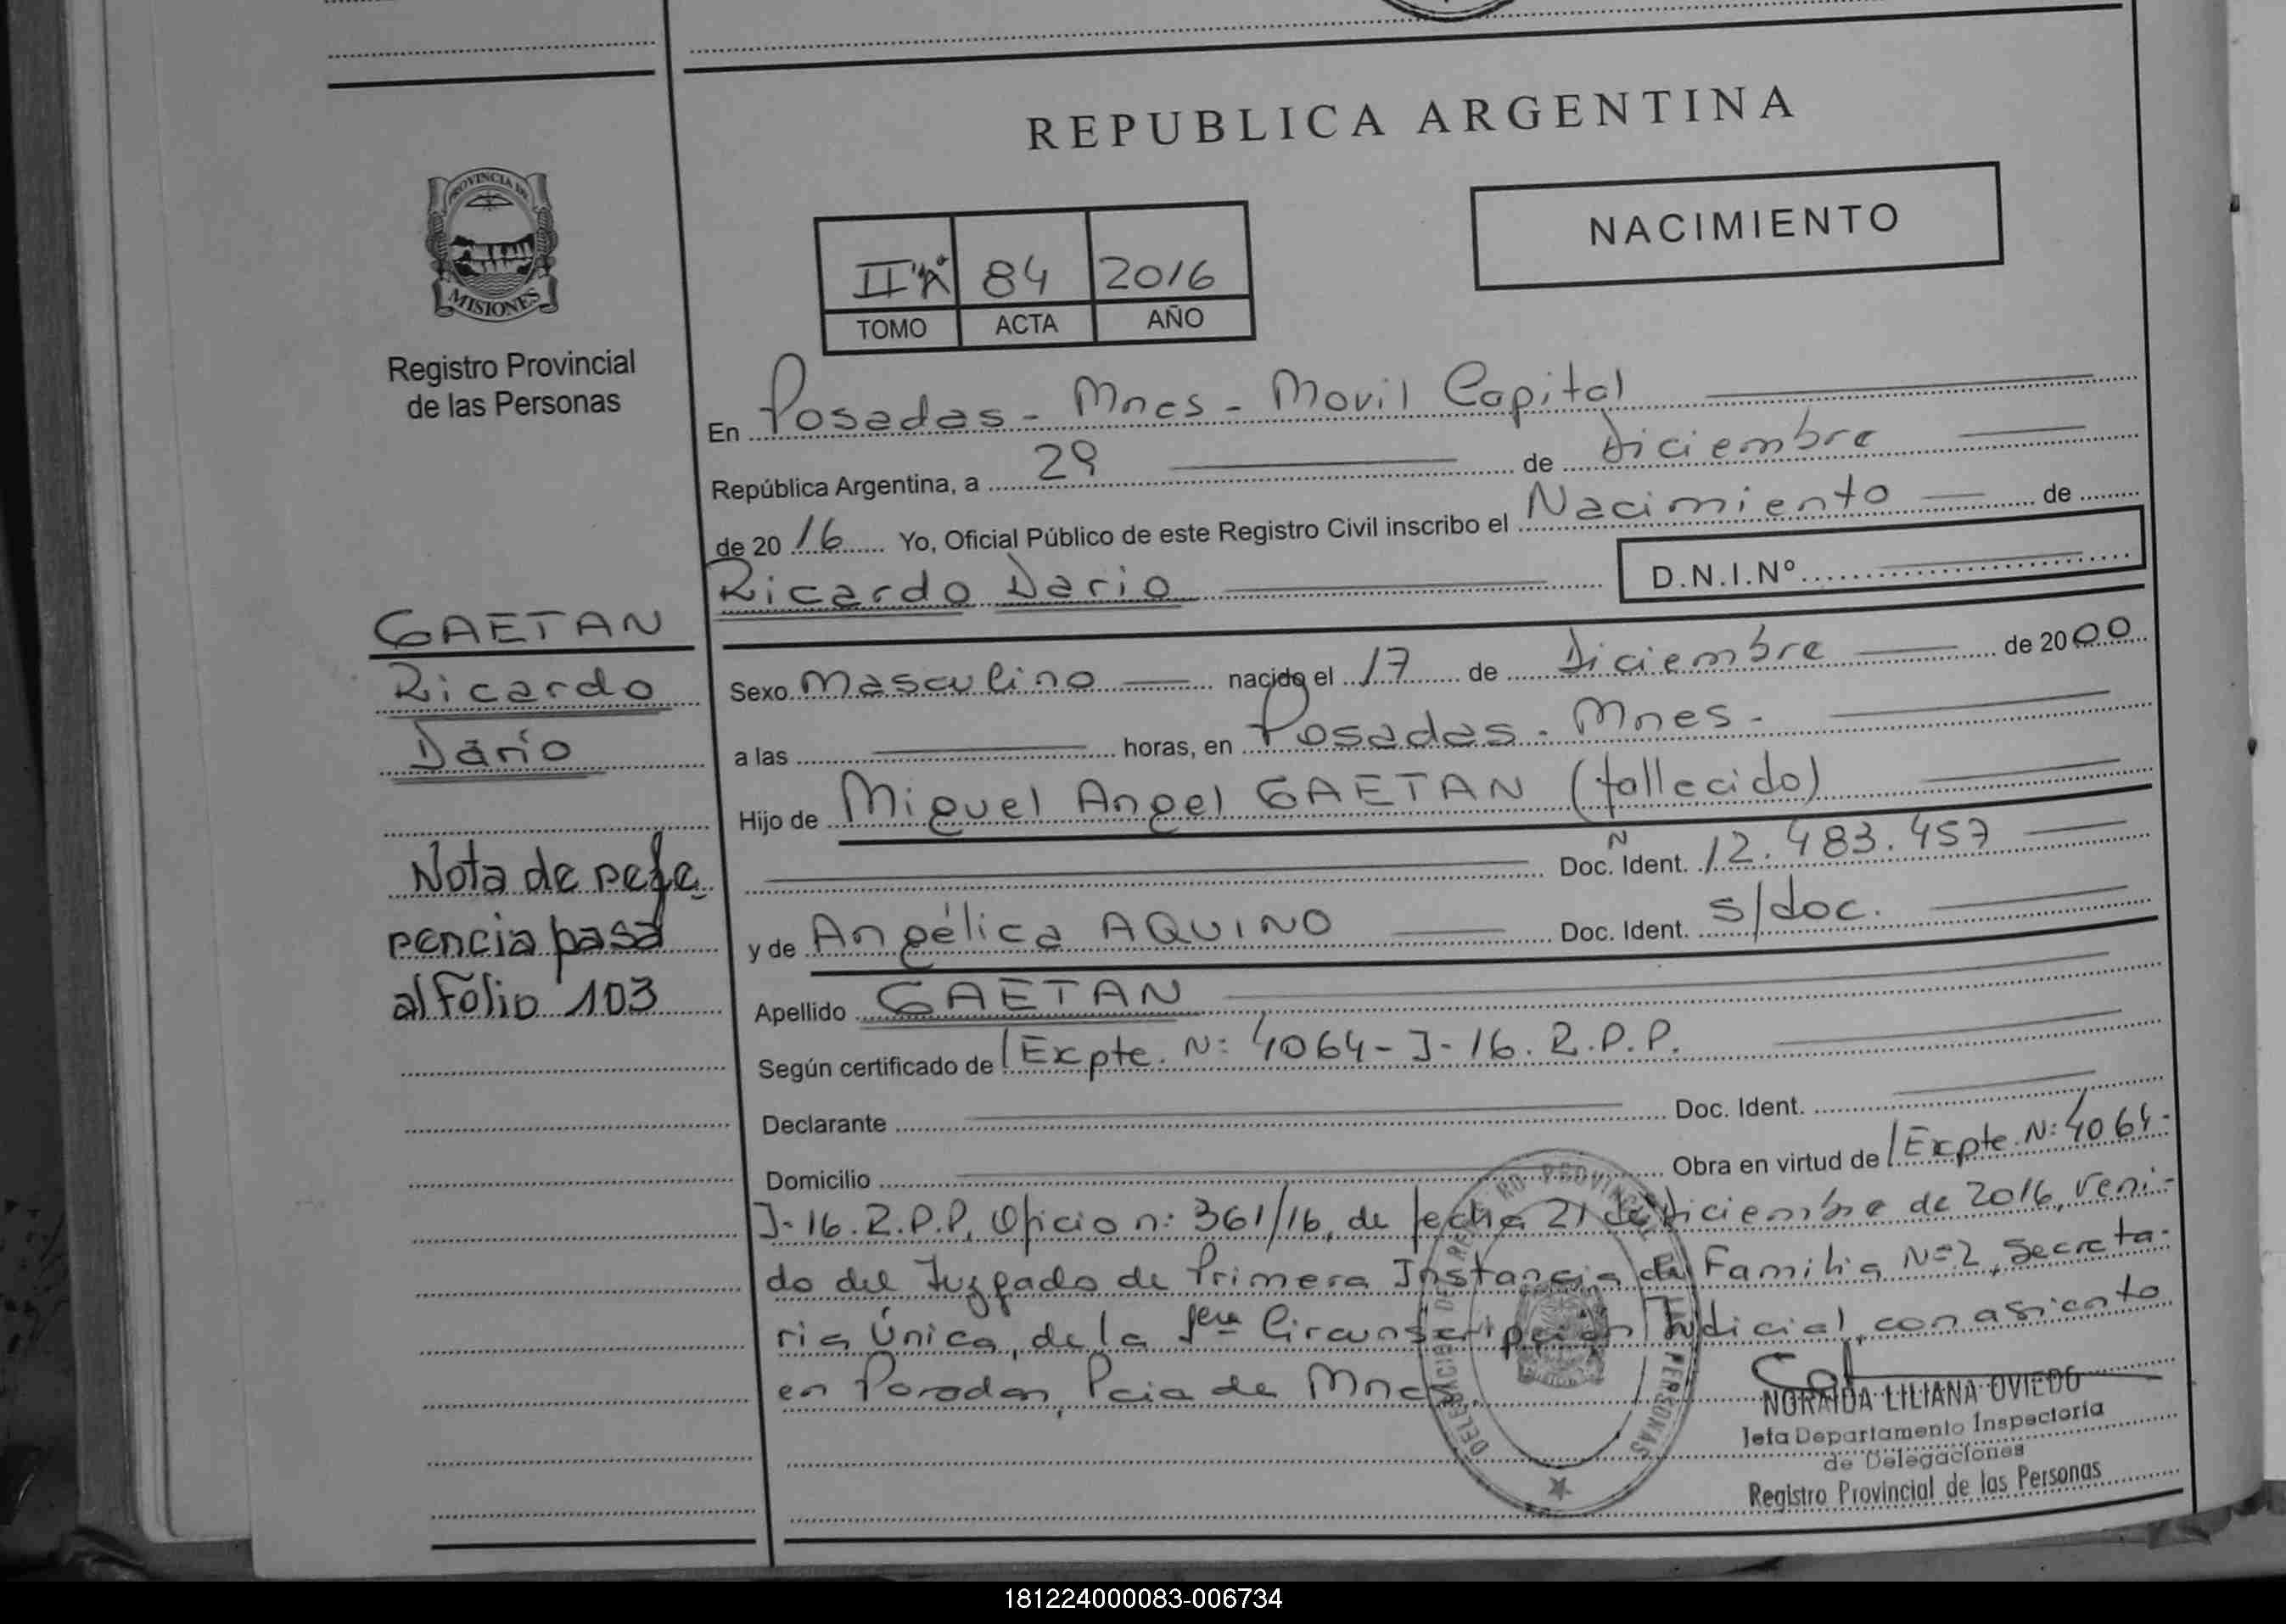 REPUBLICA ARGENTINA
PROVINCIA DE
MISIONES
Registro Provincial
de las Personas
NACIMIENTO
II"A" 84 2016
TOMO ACTA AÑO
En Posadas - Mnes - Movil Capital
República Argentina, a 29 de Diciembre
de 2016 Yo, Oficial Público de este Registro Civil inscribo el Nacimiento de
Ricardo Dario D.N.I.Nº
GAETAN
Ricardo
Darío
Sexo Masculino nacido el 17 de Diciembre de 2000
a las horas, en Posadas - Mnes -
Hijo de Miguel Angel GAETAN (fallecido)
Doc. Ident. Ñ 12.483.457
y de Angélica AQUINO Doc. Ident. s/doc.
Apellido GAETAN
Según certificado de Expte. N: 4064-J-16. R.P.P.
Declarante Doc. Ident.
Domicilio Obra en virtud de Expte. N: 4064-
J-16. R.P.P, Oficio n: 361/16, de fecha 21 de Diciembre de 2016, veni-
do del Juzgado de Primera Instancia de Familia N=2, Secreta-
ria Única, de la 1era Circunscripción Judicial, con asiento
en Posadas, Pcia de Mnes.
Nota de refe-
rencia pasa
al Folio 103
NORAIDA LILIANA OVIEDO
Jefa Departamento Inspectoría
de Delegaciones
Registro Provincial de las Personas
181224000083-006734